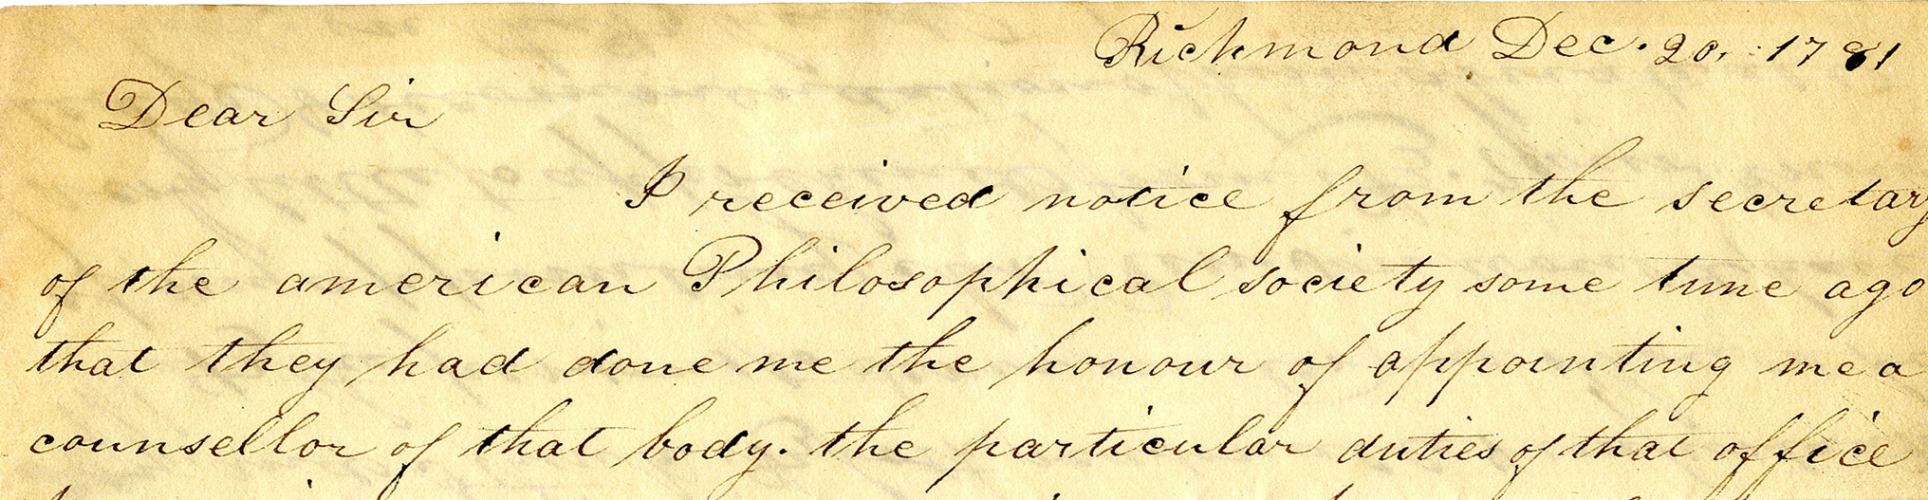 Richmond Dec. 20. 1781
Dear Sir
I received notice from the secretary
of the american Philosophical society some time ago
that they had done me the honour of appointing me a
counsellor of that body. the particular duties of that office